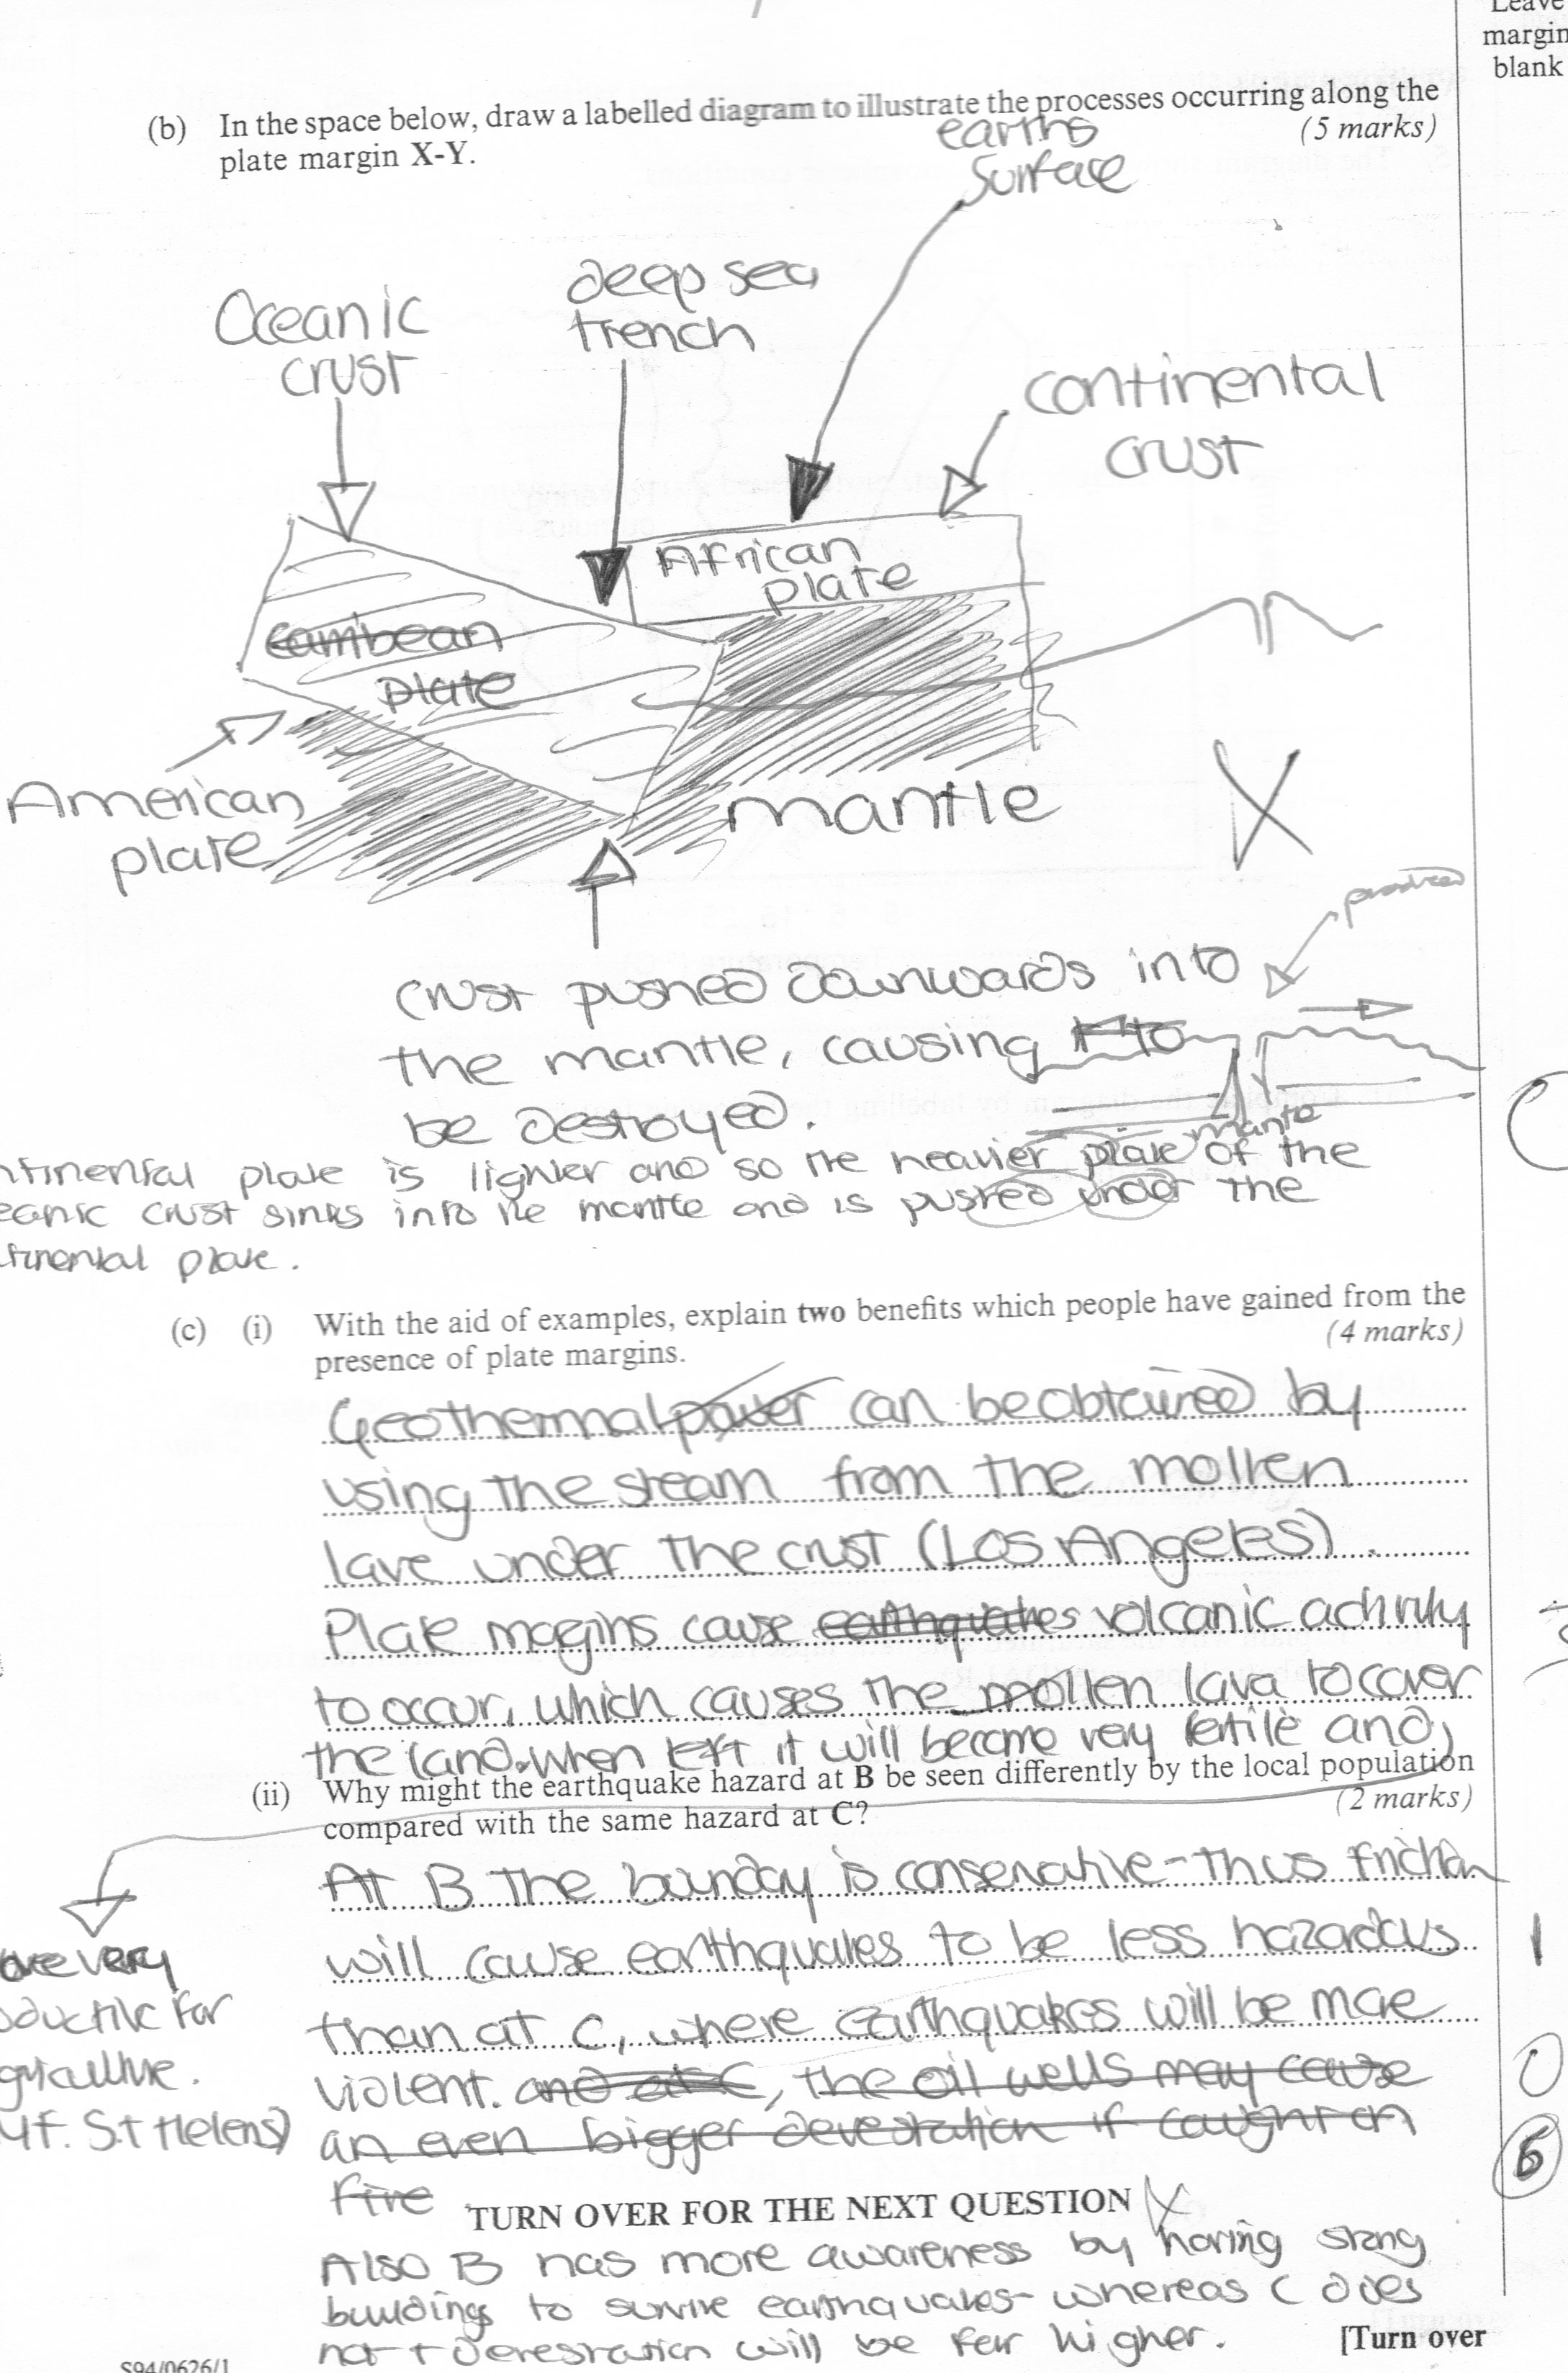 Leave
margin
blank
(b) In the space below, draw a labelled diagram to illustrate the processes occurring along the
plate margin X-Y. (5 marks)
earths
surface
deep sea
trench
Oceanic
crust
continental
crust
African
plate
Carribean
plate
American
plate
mantle
crust pushed downwards into
the mantle, causing it to
be destroyed.
mantle
ntinental plate is lighter and so the heavier plate of the
eanic crust sinks into the mantle and is pushed under the
tinental plate.
(c) (i) With the aid of examples, explain two benefits which people have gained from the
presence of plate margins. (4 marks)
Geothermal power can be obtained by
using the steam from the mollen
lave under the crust (Los Angeles).
Plate magins cause earthquakes volcanic activity
to occur, which causes the mollen lava to cover
the land. When left it will become very fertile and
(ii) Why might the earthquake hazard at B be seen differently by the local population
compared with the same hazard at C? (2 marks)
At B the bounday is conservative - thus friction
will cause earthquakes to be less hazardous
than at C, where earthquakes will be more
violent. and at C, the oil wells may cause
an even bigger devestation if caught on
fire
very
oductive for
griculture.
Mt. St Helens)
1
0
5
TURN OVER FOR THE NEXT QUESTION
Also B has more awareness by having strong
buildings to survive earthquakes - whereas C does
not + devestation will be far higher.
[Turn over
S94/0626/1